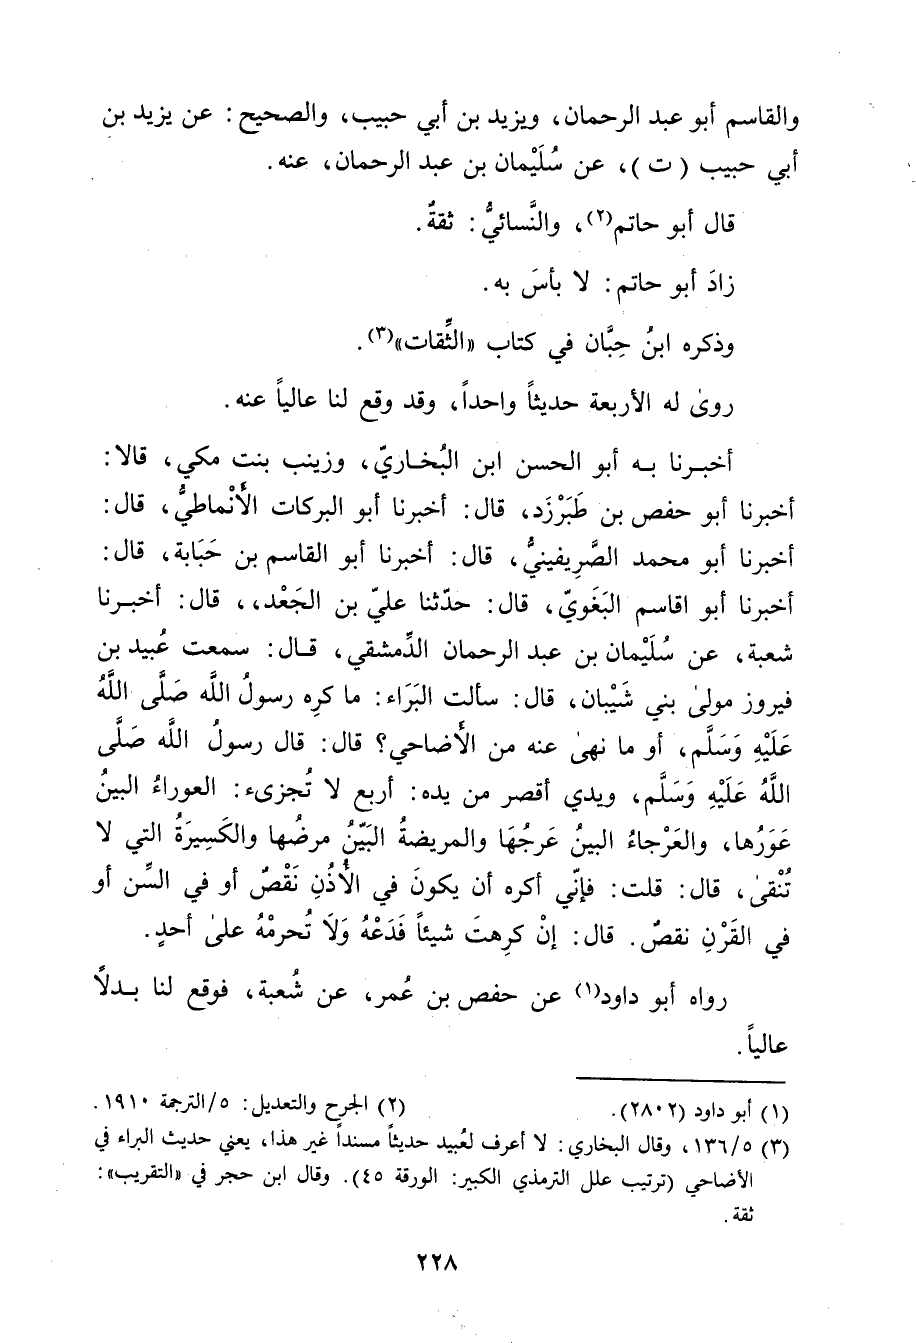 والقاسم أبو عبد الرحمان، ويزيد بن أبي حبيب، والصحيح: عن يزيد بن
أبي حبيب (ت)، عن سُلَيْمان بن عبد الرحمان، عنه.
قال أبو حاتم(٢)، والنَّسائيُّ: ثقةٌ.
زادَ أبو حاتم: لا بأسَ به.
وذكره ابنُ حِبَّان في كتاب «الثِّقات»(٣).
روىٰ له الأربعة حديثاً واحداً، وقد وقع لنا عالياً عنه.
أخبرنا به أبو الحسن ابن البُخاريّ، وزينب بنت مكي، قالا:
أخبرنا أبو حفص بن طَبَرْزَد، قال: أخبرنا أبو البركات الأَنْماطيُّ، قال:
أخبرنا أبو محمد الصَّرِيفينيُّ، قال: أخبرنا أبو القاسم بن حَبَابة، قال:
أخبرنا أبو اقاسم البَغَويّ، قال: حدّثنا عليّ بن الجَعْد،، قال: أخبرنا
شعبة، عن سُلَيْمان بن عبد الرحمان الدِّمشقي، قال: سمعت عُبيد بن
فيروز مولىٰ بني شَيْبان، قال: سألت البَرَاء: ما كرِه رسولُ اللَّه صَلَّى اللَّهُ
عَلَيْهِ وَسَلَّم، أو ما نهىٰ عنه من الأَضاحي؟ قال: قال رسولُ اللَّه صَلَّى
اللَّهُ عَلَيْهِ وَسَلَّم، ويدي أقصر من يده: أربع لا تُجزىء: العوراءُ البينُ
عَوَرُها، والعَرْجاءُ البينُ عَرجُهَا والمريضةُ البَيّنُ مرضُها والكَسِيرَةُ التي لا
تُنْقىٰ، قال: قلت: فإنّي أكره أن يكونَ في الأُذُنِ نَقْصٌ أو في السِّن أو
في القَرْنِ نقصٌ. قال: إنْ كرِهتَ شيئاً فَدَعْهُ وَلَا تُحرمْهُ علىٰ أحدٍ.
رواه أبو داود(١) عن حفص بن عُمر، عن شُعبة، فوقع لنا بدلاً
عالياً.
(١) أبو داود (٢٨٠٢). (٢) الجرح والتعديل: ٥/الترجمة ١٩١٠.
(٣) ١٣٦/٥، وقال البخاري: لا أعرف لعُبيد حديثاً مسنداً غير هذا، يعني حديث البراء في
الأضاحي (ترتيب علل الترمذي الكبير: الورقة ٤٥). وقال ابن حجر في «التقريب»:
ثقة.
٢٢٨